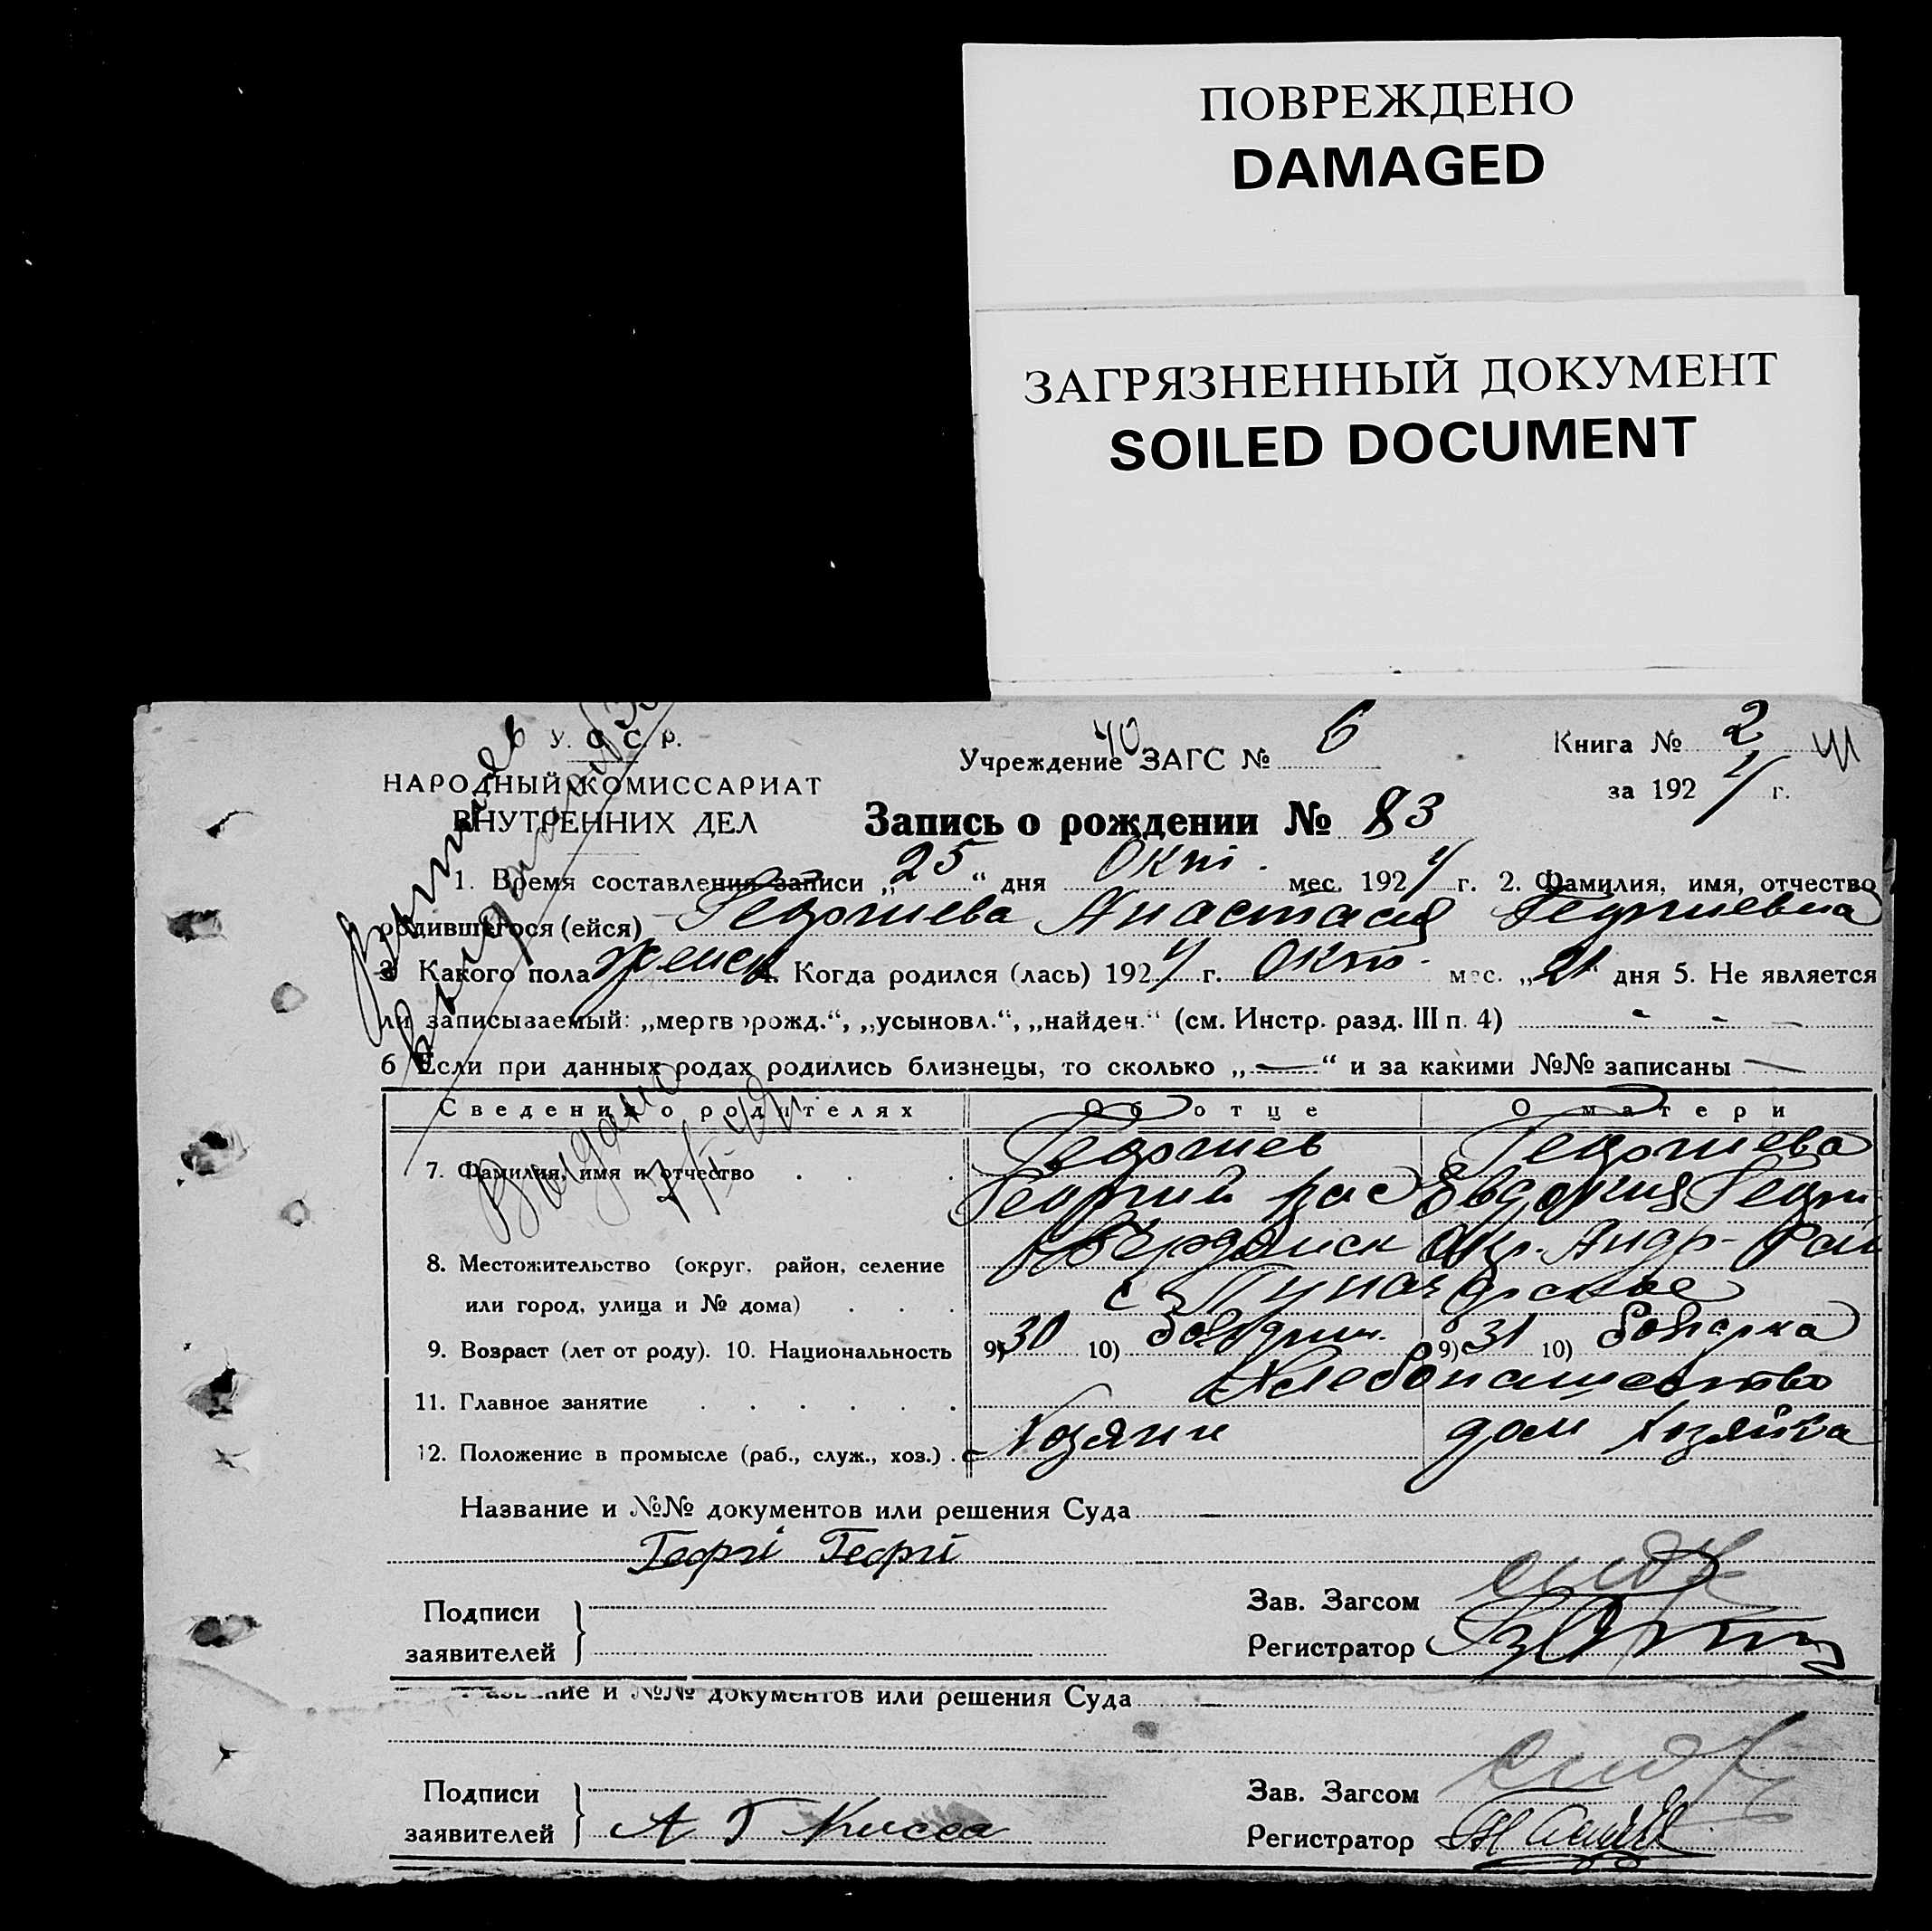 ПОВРЕЖДЕНО
DAMAGED
ЗАГРЯЗНЕННЫЙ ДОКУМЕНТ
SOILED DOCUMENT
У. С. С. Р.
НАРОДНЫЙ КОМИССАРИАТ
ВНУТРЕННИХ ДЕЛ
40
Учреждение ЗАГС № 6
Книга № 2
за 1924 г.
Запись о рождении № 83
1. Время составления записи „25“ дня Окт. мес. 1924 г. 2. Фамилия, имя, отчество
родившегося (ейся) Георгиева Анастасия Георгиевна
3 Какого пола женск 4. Когда родился (лась) 1924 г. Окт. мес. „21“ дня 5. Не является
ли записываемый: „мертворожд.“, „усыновл.“, „найден.“ (см. Инстр. разд. III п. 4) - - -
6 Если при данных родах родились близнецы, то сколько „—“ и за какими №№ записаны —
Выдано
Сведения о родителях Об отце О матери
7. Фамилия, имя и отчество Георгиев Георгиева
Георгий Евдокия Георг
8. Местожительство (округ, район, селение Бердянск Окр. Андр- Рай
или город, улица и № дома)
9. Возраст (лет от роду). 10. Национальность 9) 30 10) 9) 31 10) болгарка
11. Главное занятие Хлебопашество
12. Положение в промысле (раб., служ., хоз.) Хозяин дом хозяйка
Название и №№ документов или решения Суда —
Георгі Георгі
Подписи
заявителей
Зав. Загсом
Регистратор
Название и №№ документов или решения Суда —
Подписи
заявителей А Г Кисса
Зав. Загсом
Регистратор